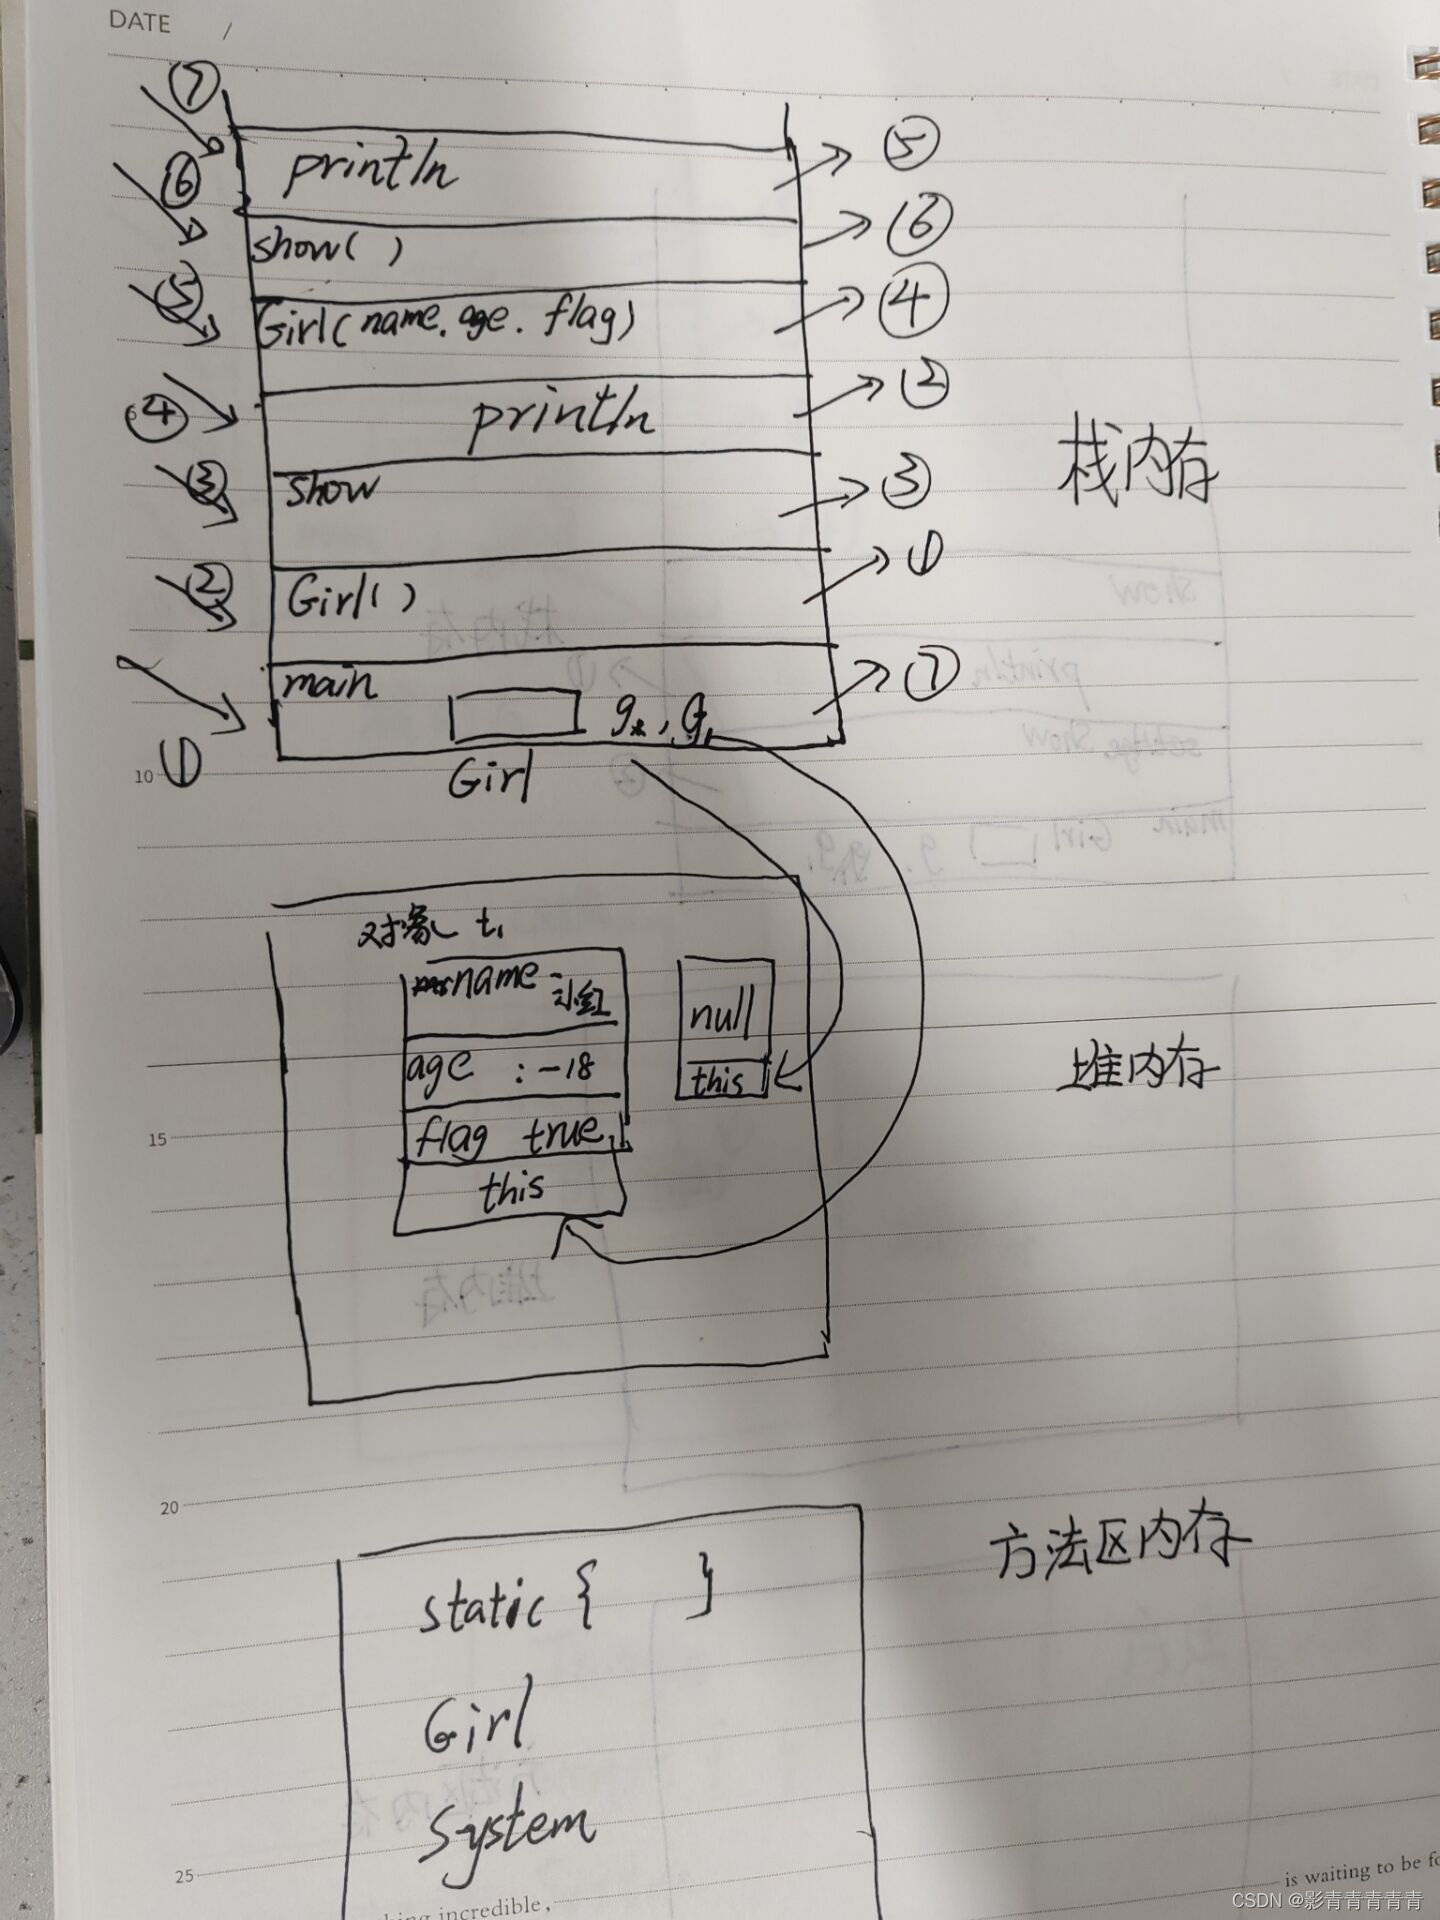 DATE /
⑦
println ⑤
⑥
show( ) ⑥
⑤
Girl(name, age, flag) ④
④
println ②
③
show ③
栈内存
②
Girl( ) ①
main ⑦
①
10
Girl
对象 t1
name: 小红
null
age :-18
this
堆内存
15
flag true
this
20
方法区内存
static { }
Girl
System
25
is waiting to be fo
hing incredible,
CSDN @影青青青青青